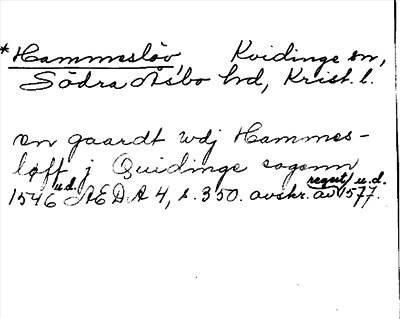 *Hammesløv, Kvidinge sn,
Södra Åsbo hd, Krist. l.
en gaardt wdj Hammes-
løfft j Quidinge sogenn
1546 u.d. ÆDA 4, s. 350. avskr. av regest/ u.d. 1577.